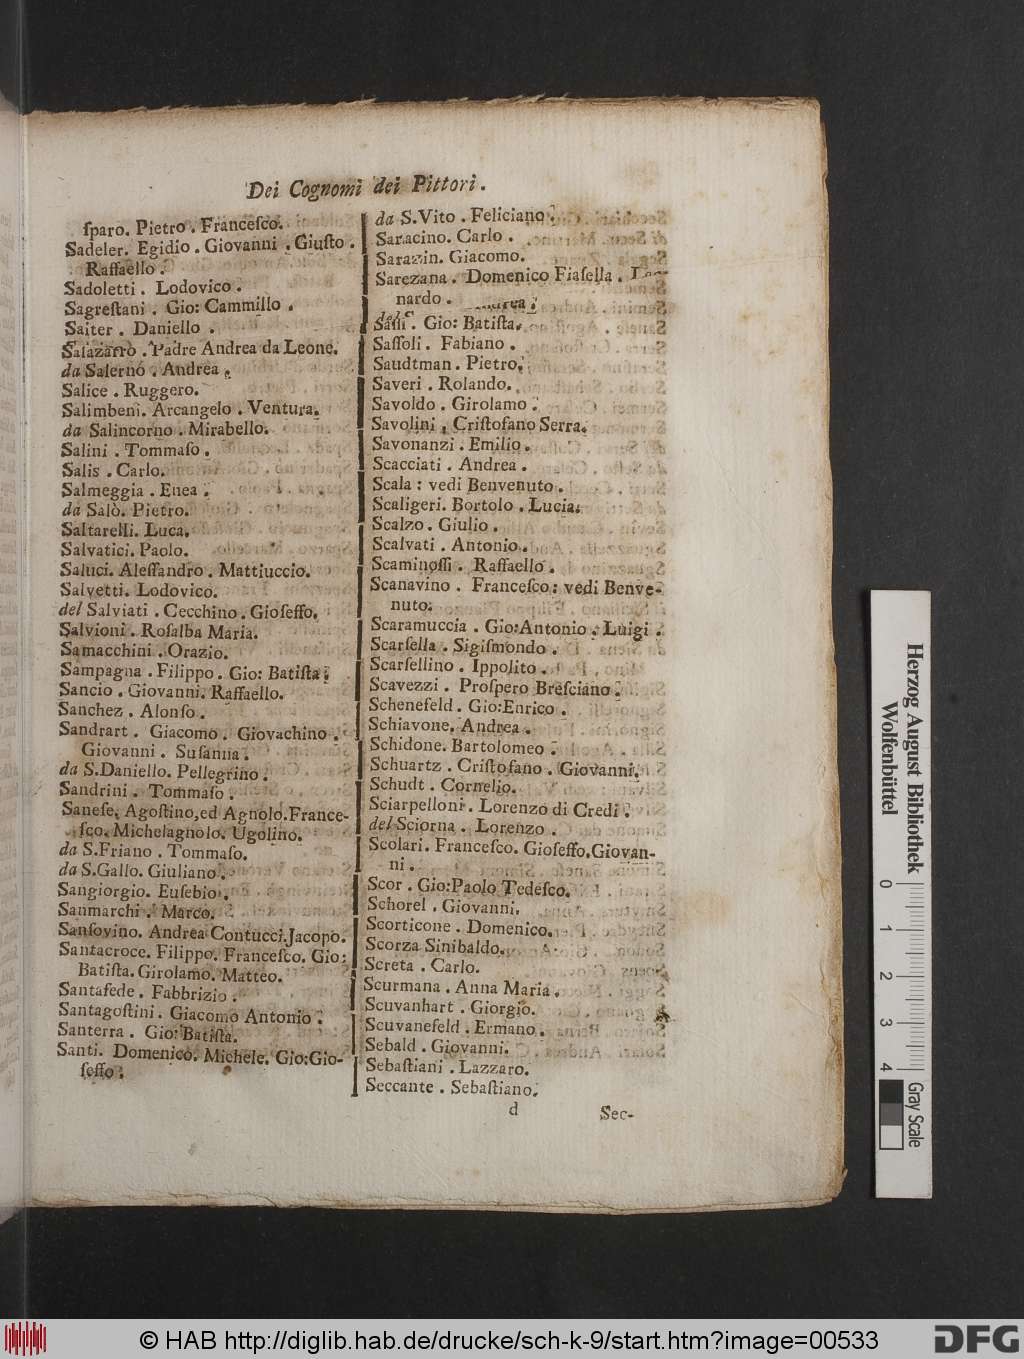 Dei Cognomi dei Pittori.
ſparo. Pietro. Franceſco.
Sadeler. Egidio. Giovanni. Giuſto.
Raffaello.
Sadoletti. Lodovico.
Sagreſtani. Gio: Cammillo.
Saiter. Daniello.
Salazarro. Padre Andrea da Leone.
da Salerno. Andrea.
Salice. Ruggero.
Salimbeni. Arcangelo. Ventura.
da Salincorno. Mirabello.
Salini. Tommaſo.
Salis. Carlo.
Salmeggia. Enea.
da Salò. Pietro.
Saltarelli. Luca.
Salvatici. Paolo.
Saluci. Aleſſandro. Mattiuccio.
Salvetti. Lodovico.
del Salviati. Cecchino. Gioſeffo.
Salvioni. Roſalba Maria.
Samacchini. Orazio.
Sampagna. Filippo. Gio: Batiſta.
Sancio. Giovanni. Raffaello.
Sanchez. Alonſo.
Sandrart. Giacomo. Giovachino.
Giovanni. Suſanna.
da S.Daniello. Pellegrino.
Sandrini. Tommaſo.
Saneſe. Agoſtino, ed Agnolo. France-
ſco. Michelagnolo. Ugolino.
da S.Friano. Tommaſo.
da S.Gallo. Giuliano.
Sangiorgio. Euſebio.
Sanmarchi. Marco.
Sanſovino. Andrea Contucci. Jacopo.
Santacroce. Filippo. Franceſco. Gio:
Batiſta. Girolamo. Matteo.
Santafede. Fabbrizio.
Santagoſtini. Giacomo Antonio.
Santerra. Gio: Batiſta.
Santi. Domenico. Michele. Gio: Gio-
ſeffo.
da S.Vito. Feliciano.
Saracino. Carlo.
Sarazin. Giacomo.
Sarezana. Domenico Fiaſella.
nardo.
Saſſi. Gio: Batiſta.
Saſſoli. Fabiano.
Saudtman. Pietro.
Saveri. Rolando.
Savoldo. Girolamo.
Savolini. Criſtofano Serra.
Savonanzi. Emilio.
Scacciati. Andrea.
Scala: vedi Benvenuto.
Scaligeri. Bortolo. Lucia.
Scalzo. Giulio.
Scalvati. Antonio.
Scaminoſſi. Raffaello.
Scanavino. Franceſco: vedi Benve-
nuto.
Scaramuccia. Gio: Antonio. Luigi.
Scarſella. Sigiſmondo.
Scarſellino. Ippolito.
Scavezzi. Proſpero Breſciano.
Schenefeld. Gio: Enrico.
Schiavone. Andrea.
Schidone. Bartolomeo.
Schuartz. Criſtofano. Giovanni.
Schudt. Cornelio.
Sciarpelloni. Lorenzo di Credi.
del Sciorna. Lorenzo.
Scolari. Franceſco. Gioſeffo. Giovan-
ni.
Scor. Gio: Paolo Tedeſco.
Schorel. Giovanni.
Scorticone. Domenico.
Scorza Sinibaldo.
Screta. Carlo.
Scurmana. Anna Maria.
Scuvanhart. Giorgio.
Scuvanefeld. Ermano.
Sebald. Giovanni.
Sebaſtiani. Lazzaro.
Seccante. Sebaſtiano.
d
Sec-
Herzog August Bibliothek
Wolfenbüttel
0 1 2 3 4
Gray Scale
© HAB http://diglib.hab.de/drucke/sch-k-9/start.htm?image=00533
DFG